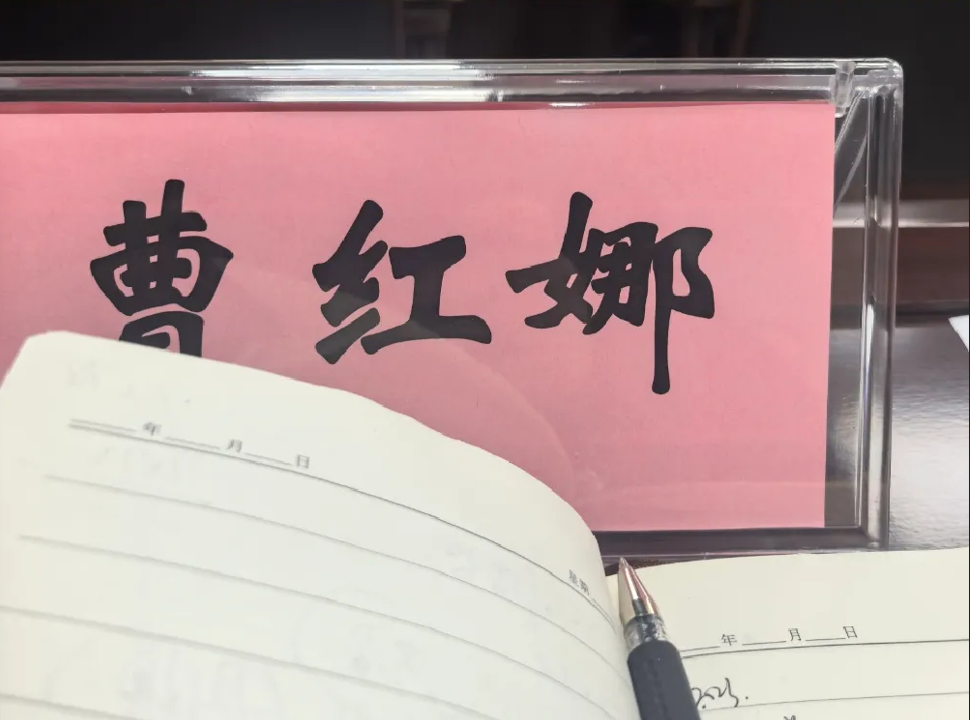 曹红娜
年 月 日
星期
年 月 日